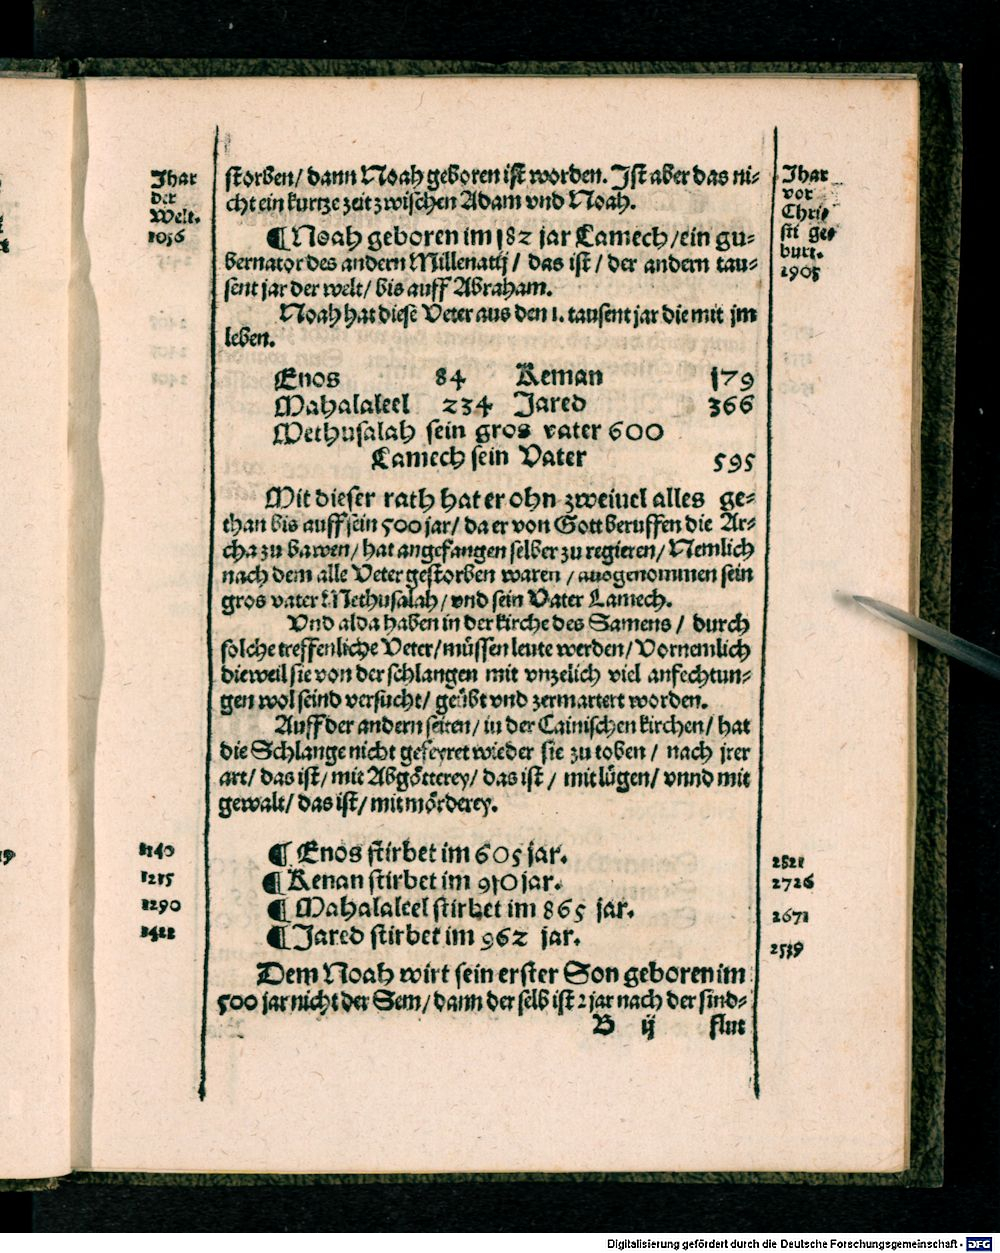 Jhar
der
Welt.
1056
storben/ dann Noah geboren ist worden. Ist aber das ni-
cht ein kurtze zeit zwischen Adam vnd Noah.
¶ Noah geboren im 182 jar Lamech/ ein gu-
bernator des andern Millenarij/ das ist/ der andern tau-
sent jar der welt/ bis auff Abraham.
Noah hat diese Veter aus den 1. tausent jar die mit jm
leben.
Jhar
vor
Chri-
sti ge-
burt.
2905
Enos 84 Keman 179
Mahalaleel 234 Jared 366
Methusalah sein gros vater 600
Lamech sein Vater 595
Mit dieser rath hat er ohn zweiuel alles ge-
than bis auff sein 500 jar/ da er von Gott beruffen die Ar-
cha zu bawen/ hat angefangen selber zu regieren/ Nemlich
nach dem alle Veter gestorben waren/ ausgenommen sein
gros vater Methusalah/ vnd sein Vater Lamech.
Vnd alda haben in der kirche des Samens/ durch
solche treffenliche Veter/ müssen leute werden/ Vornemlich
dieweil sie von der schlangen mit vnzelich viel anfechtun-
gen wol seind versucht/ geübt vnd zermartert worden.
Auff der andern seiten/ in der Cainischen kirchen/ hat
die Schlange nicht gefeyret wieder sie zu toben/ nach jrer
art/ das ist/ mit Abgötterey/ das ist/ mit lügen/ vnnd mit
gewalt/ das ist/ mit mörderey.
1140 ¶ Enos stirbet im 605 jar. 2821
1215 ¶ Kenan stirbet im 910 jar. 2726
1290 ¶ Mahalaleel stirbet im 865 jar. 2671
1422 ¶ Jared stirbet im 962 jar. 2539
Dem Noah wirt sein erster Son geboren im
500 jar nicht der Sem/ dann der selb ist 2 jar nach der sind-
B ij flut
Digitalisierung gefördert durch die Deutsche Forschungsgemeinschaft - DFG